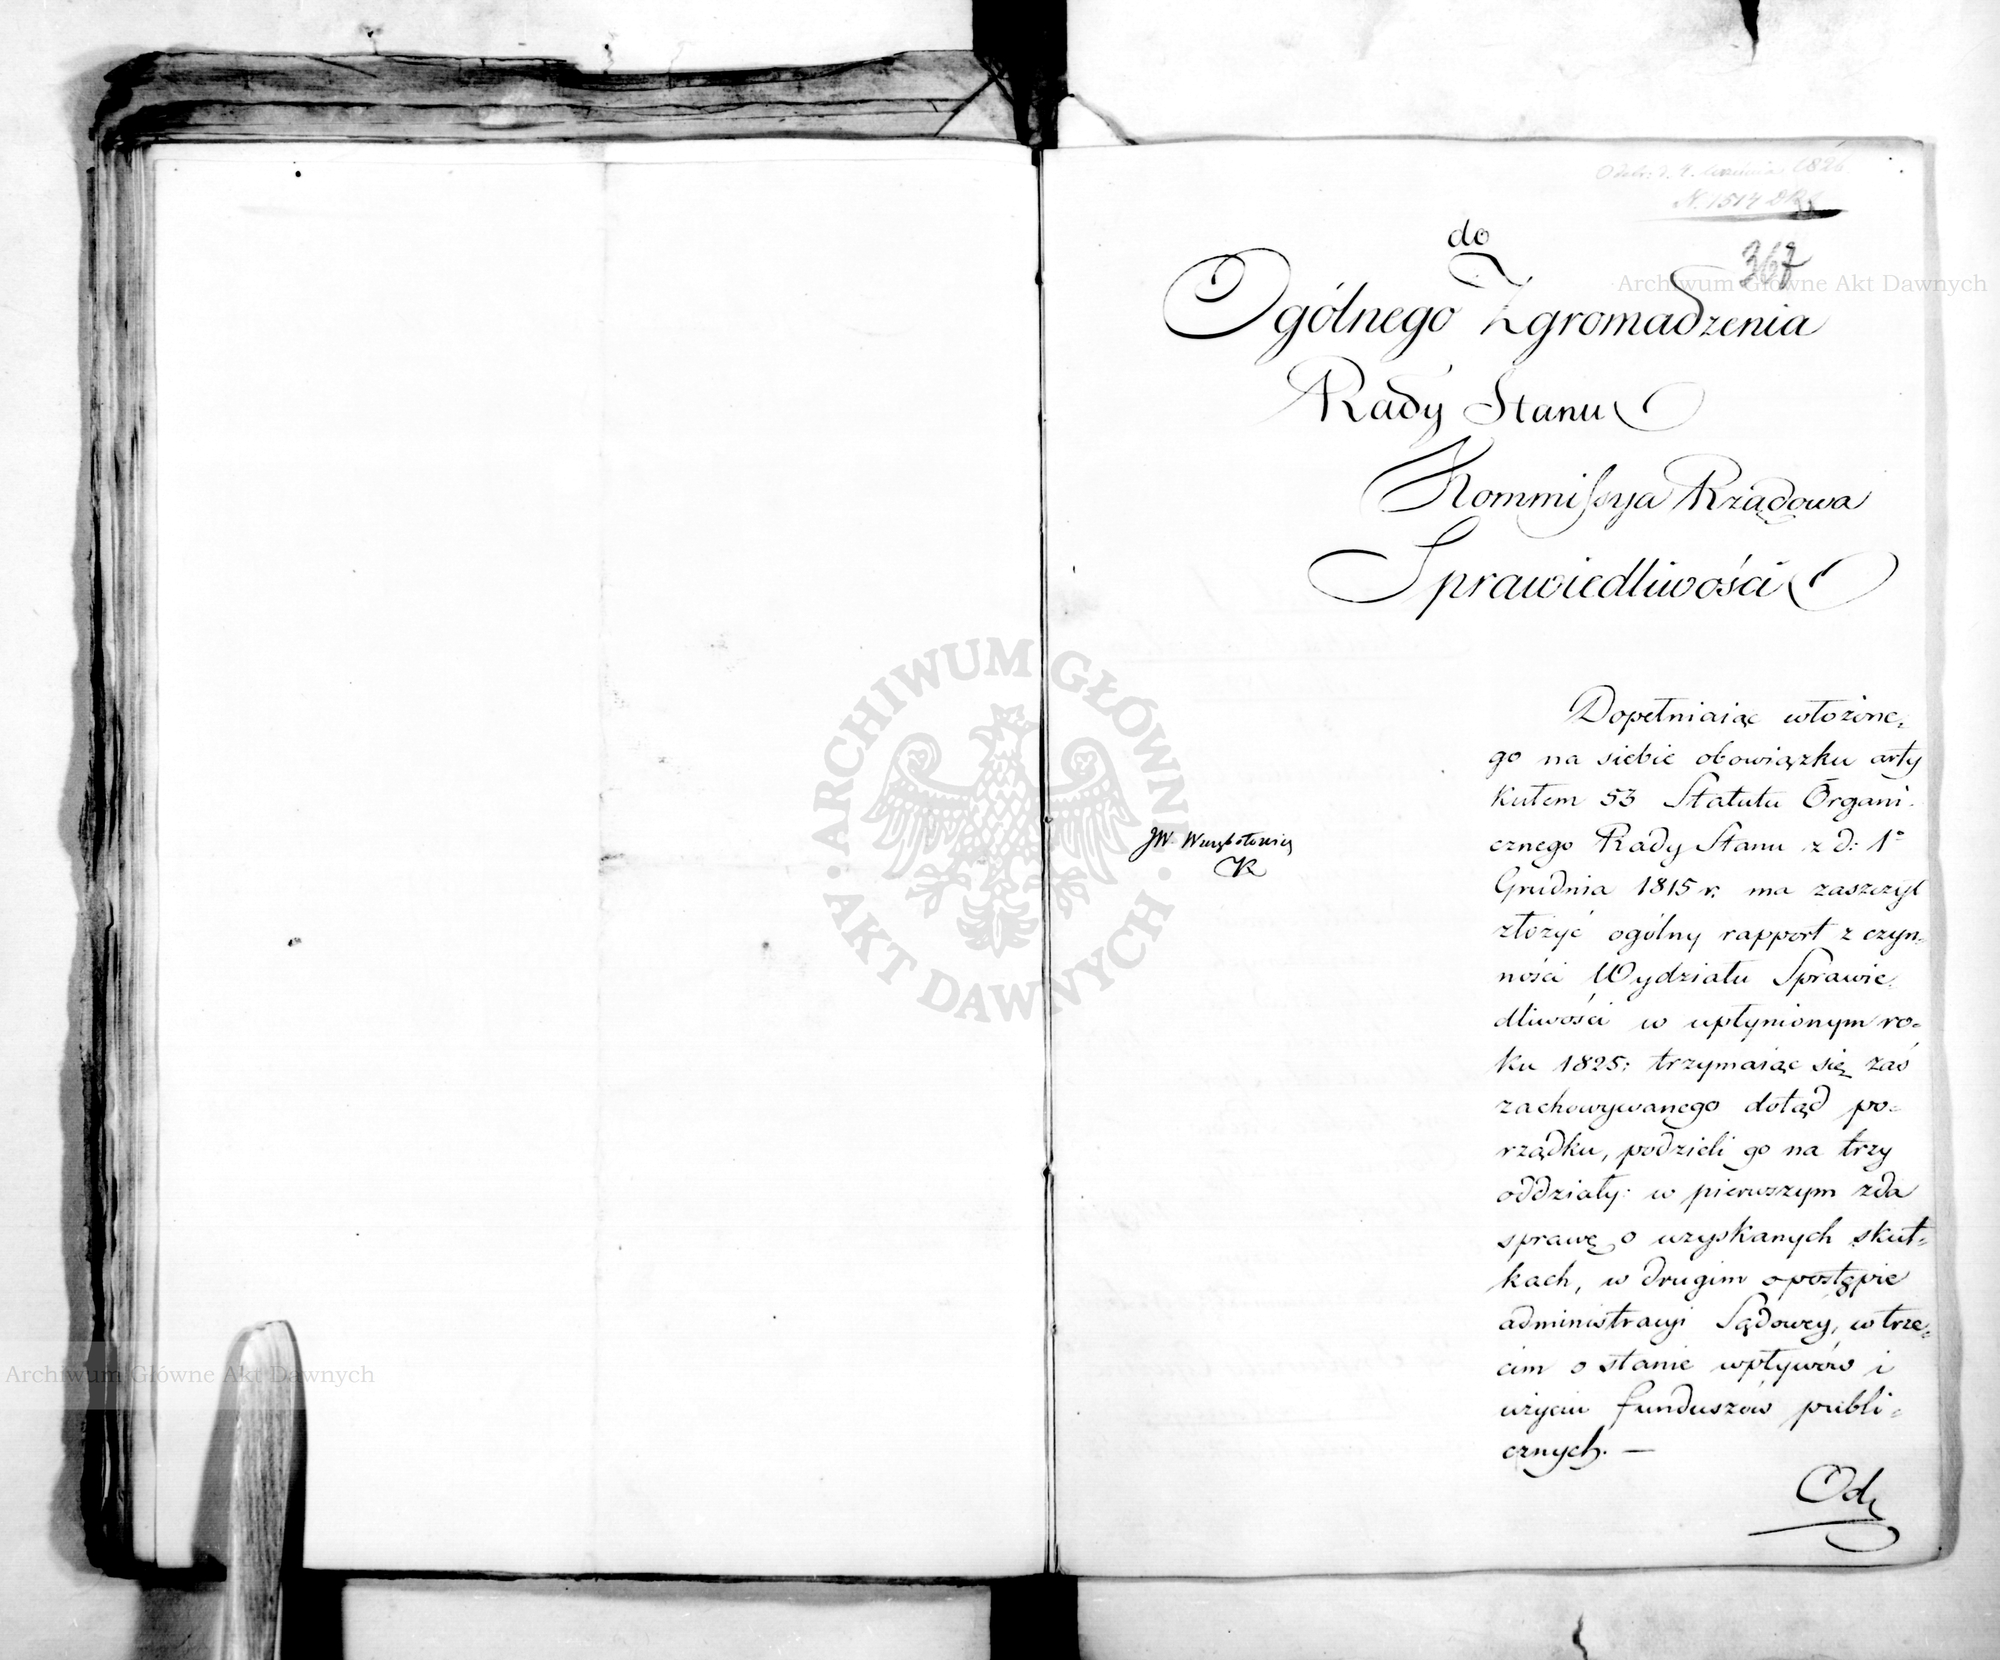 1826
N. 1514
367
do
Ogólnego Zgromadzenia
Rady Stanu
Kommissya Rządowa
Sprawiedliwości
Dopełniaiąc włożone-
go na siebie obowiązku arty
kułem 53 Statutu Organi-
cznego Rady Stanu z d: 1°
Grudnia 1815 r. ma zaszczyt
złożyć ogólny rapport z czyn-
ności Wydziału Sprawie-
dliwości w upłynionym ro-
ku 1825; trzymaiąc się zaś
zachowywanego dotąd po-
rządku, podzieli go na trzy
oddziały: w pierwszym zda
sprawę o uzyskanych skut-
kach, w drugim o postępie
administracyi Sądowey, w trze-
cim o stanie wpływów i
użyciu funduszów publi-
cznych. —
Od
JW
R
ARCHIWUM GŁÓWNE AKT DAWNYCH
Archiwum Główne Akt Dawnych
Archiwum Główne Akt Dawnych